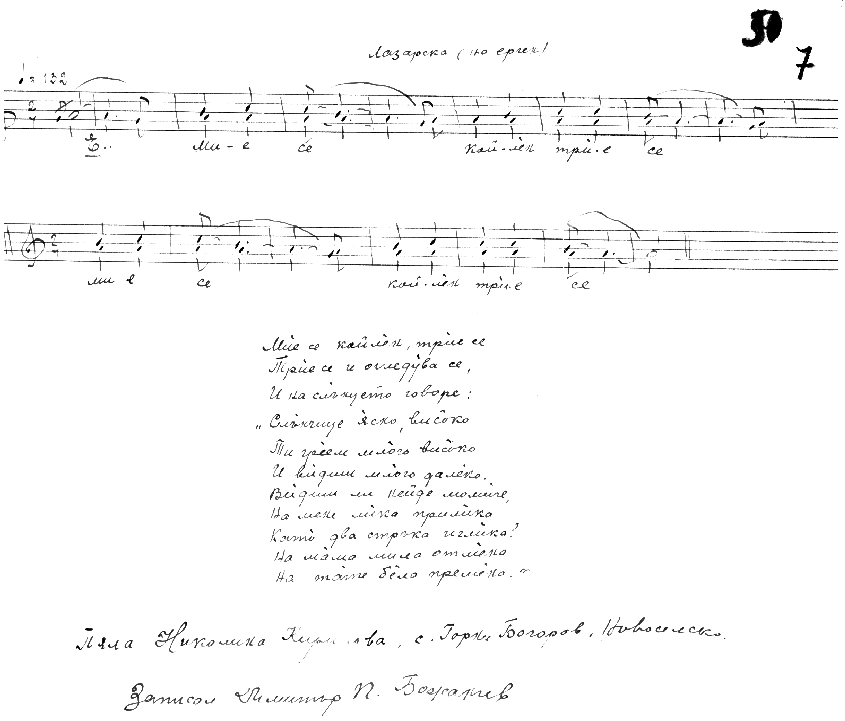 50
7
Лазарска (на ерген)
♩ = 122
Е.. ми - е се кой - лèн трѝ - е се
ми е се кой - лèн трѝ - е се
Мѝе се койлèн, трѝе се
Трѝе се и огледỳва се,
И на слъ̀нцето говоре:
„Слъ̀нчице я̀сно, висòко
Ти грèем млòго висòко
И вѝдиш млòго далèко.
Вѝдиш ли нèйде момѝче,
На мене лѝка прилѝка
Катò два стръка иглѝка?
На мàма мила отмèна
На тàте бèла премèна."
Пяла Николина, с. Горни Богоров, Новоселско.
Записал Димитър П. Божанчев